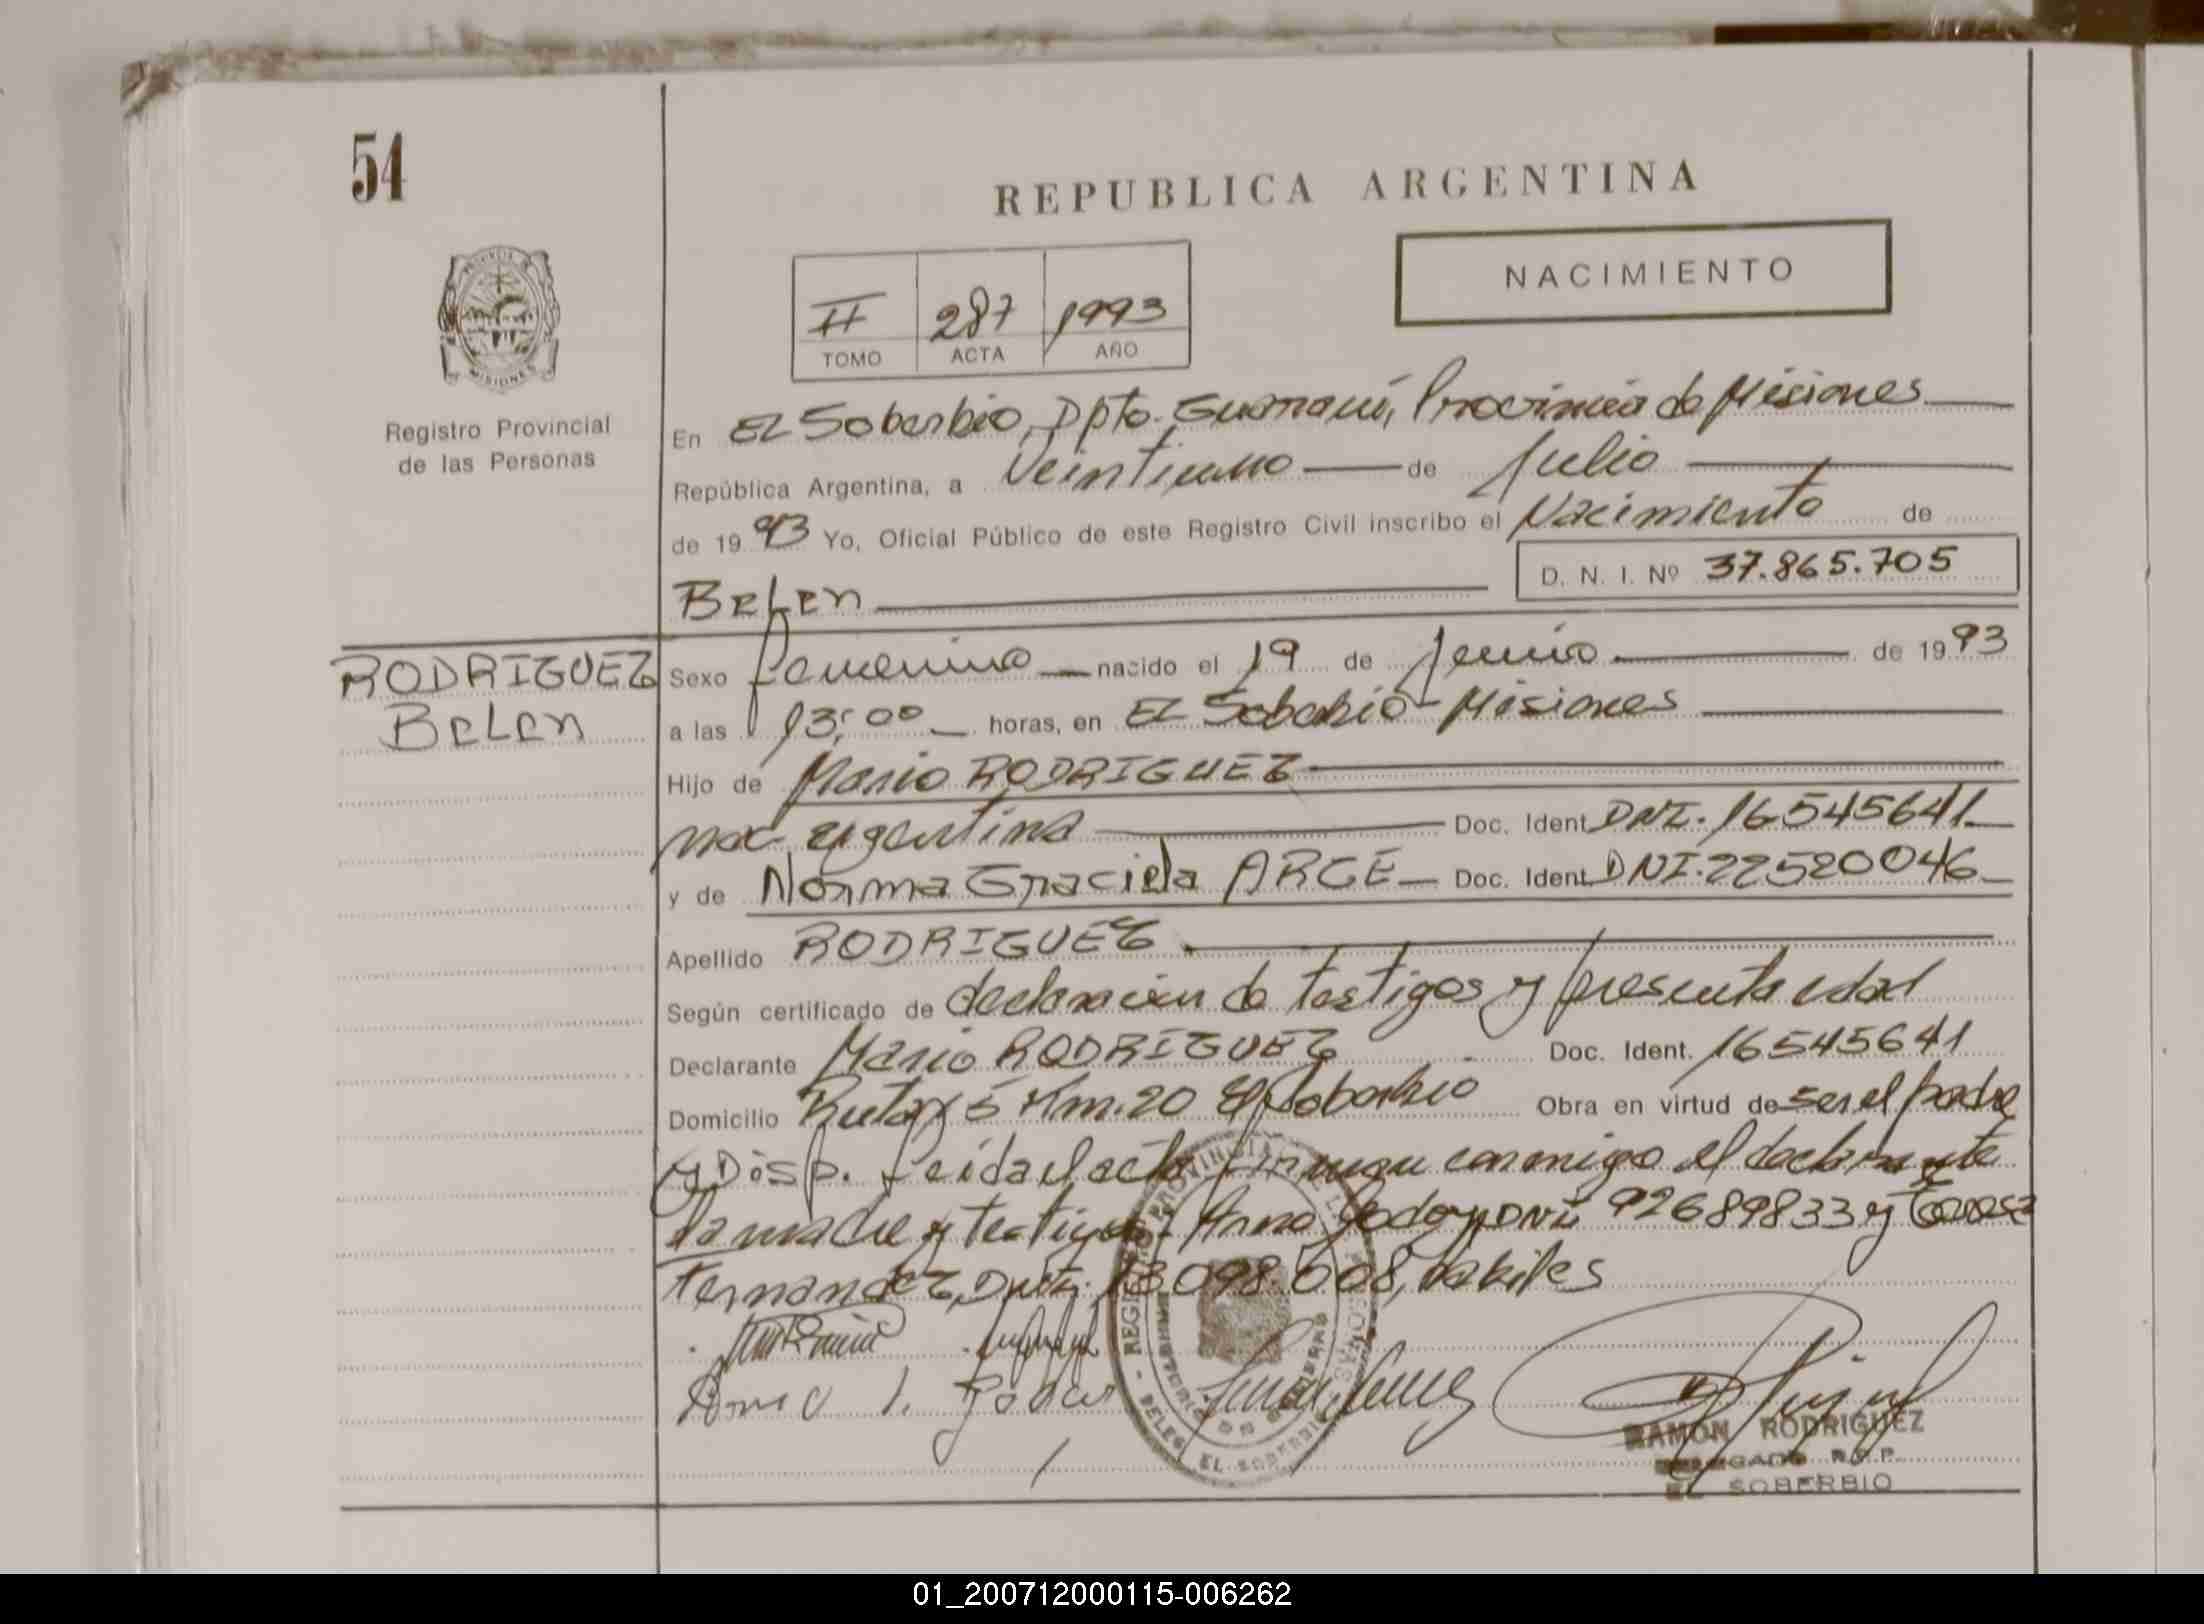 54
REPUBLICA ARGENTINA
NACIMIENTO
II 287 1993
TOMO ACTA AÑO
PROVINCIA DE
MISIONES
Registro Provincial
de las Personas
En EL Soberbio, Dpto. Guaraní, Provincia de Misiones
República Argentina, a Veintiuno de Julio
de 1993 Yo, Oficial Público de este Registro Civil inscribo el Nacimiento de
D. N. I. Nº 37.865.705
BeLen
RODRIGUEZ
BeLen
Sexo femenino nacido el 19 de Junio de 1993
a las 13:00 horas, en EL Soberbio - Misiones
Hijo de Mario RODRIGUEZ
nac. argentina Doc. Ident. DNI. 16545641
y de Norma Graciela ARCE Doc. Ident. DNI. 22520046
Apellido RODRIGUEZ
Según certificado de declaración de testigos y presenta edal
Declarante Mario RODRIGUEZ Doc. Ident. 16545641
Domicilio Ruta 5 Km. 20 El Soberbio Obra en virtud de ser el padre
y Disp. Leida el acta firman conmigo el declarante
la madre y testigos Anna Godoy DNI 92689833 y Teresa
Fernandez, DNI. 13.098.008, habiles
RAMON RODRIGUEZ
DELEGADO R.P.P.
EL SOBERBIO
01_200712000115-006262